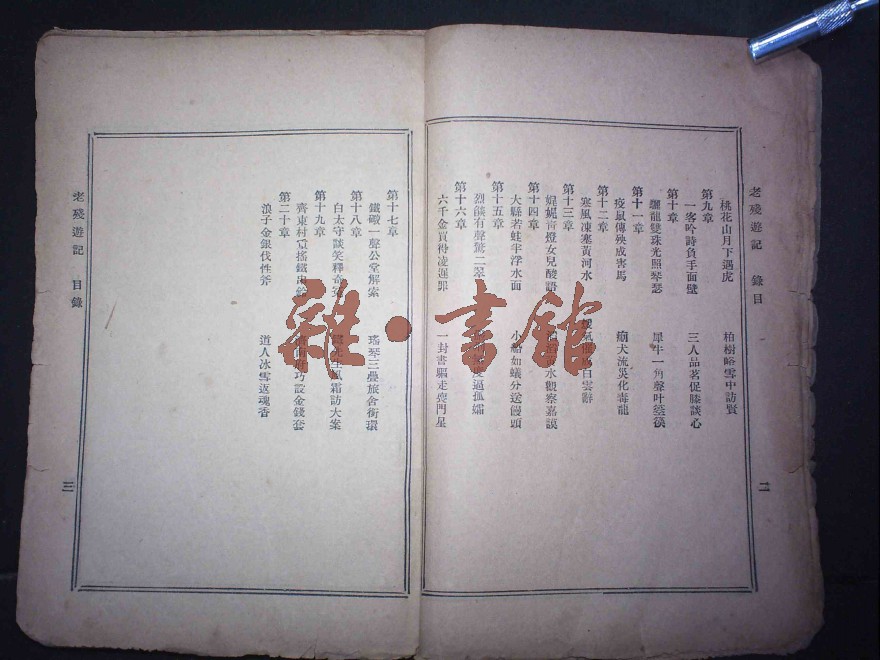 老殘遊記 錄目
二
桃花山月下遇虎 柏樹峪雪中訪賢
第九章
一客吟詩負手面壁 三人品茗促膝談心
第十章
驪龍雙珠光照琴瑟 犀牛一角聲叶箜篌
第十一章
疫鼠傳殃成害馬 瘈犬流災化毒龍
第十二章
寒風凍塞黃河水 暖氣 白雲辭
第十三章
娓娓靑燈女兒酸語 水觀察嘉謨
第十四章
大縣若蛙半浮水面 小船如蟻分送饅頭
第十五章
烈燄有聲驚二翠 逼孤孀
第十六章
六千金買得凌遲罪 一封書驅走喪門星
第十七章
鐵礮一聲公堂解索 瑤琴三疊旅舍銜環
第十八章
白太守談笑釋奇冤 風霜訪大案
第十九章
齊東村 搖鐵串鈴 巧設金錢套
第二十章
浪子金銀伐性斧 道人冰雪返魂香
老殘遊記 目錄
三
雜·書館